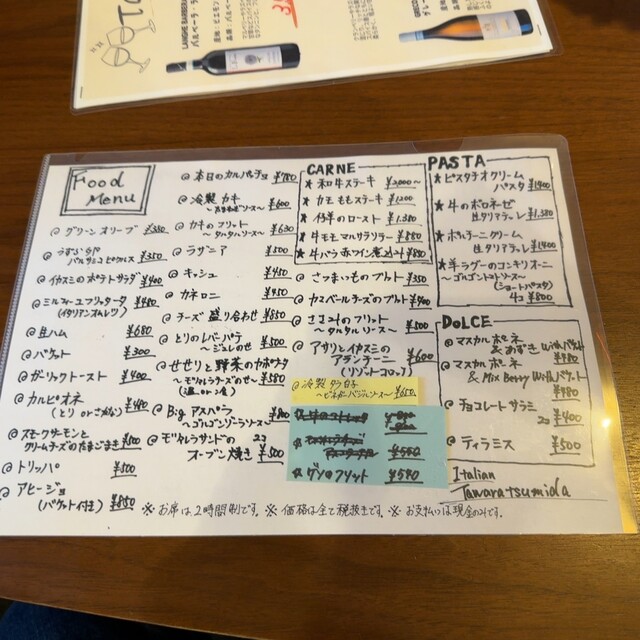 LANGHE BARBERA
Food
Menu
◎ グリーン オリーブ ¥350
バルサミコピクルス ¥350
◎ イカスミのポテトサラダ ¥400
◎ ミルフィーユフリッタータ ¥480
(イタリアンオムレツ)
◎ 生ハム ¥680
◎ バゲット ¥300
◎ ガーリックトースト ¥400
◎ カルピオーネ ¥480
◎ スモークサーモンと
クリームチーズのたまごまき ¥500
◎ トリッパ ¥500
◎ アヒージョ ¥850
(バゲット付き)
◎ 本日のカルパッチョ ¥780
◎ 冷製 カキ ¥600
◎ カキのフリット ¥630
～タルタルソース～
◎ ラザニア ¥500
◎ キッシュ ¥450
◎ カネロニ ¥450
◎ チーズ 盛り合わせ ¥850
◎ とりのレバーパテ ¥500
～ジュレのせ
◎ せせりと野菜のカポナータ
～モッツァレラチーズのせ～ ¥580
(温 or 冷)
◎ Big アスパラ
～ゴルゴンゾーラソース～
◎ モッツァレラサンドの
オーブン焼き 2コ ¥500
CARNE
★ 和牛ステーキ ¥2,000～
★ カモ ももステーキ ¥1,200
★ 仔羊のロースト ¥1,380
★ 牛モモ マルサラソテー ¥880
★ 牛バラ赤ワイン煮込み ¥880
◎ さつまいものブルト ¥350
◎ カスベールチーズのブルト ¥400
◎ ささみのフリット
～タルタルソース～ ¥500
◎ アサリとイカスミの
アランチーニ ¥600
(リゾットコロッケ)
◎ 冷製 タラ白子
～ビネガーバジルソース～ ¥650
☆ ゲソのフリット ¥590
PASTA
★ ピスタチオクリーム
パスタ ¥1,400
★ 牛のボロネーゼ
生タリアテッレ ¥1,380
★ ポルチーニクリーム
生タリアテッレ ¥1,400
★ 羊ラグーのコンキリオーニ
～ゴルゴントマトソース～
(ショートパスタ)
4コ ¥800
DOLCE
◎ マスカルポーネ
& あずき withバゲット
¥980
◎ マスカルポーネ
& Mix Berry Withバゲット
¥980
◎ チョコレートサラミ
2コ ¥400
◎ ティラミス ¥500
Italian
Tawaratsumida
※ お席は、2時間制です。 ※ 価格は全て税抜きです。 ※ お支払いは現金のみです。